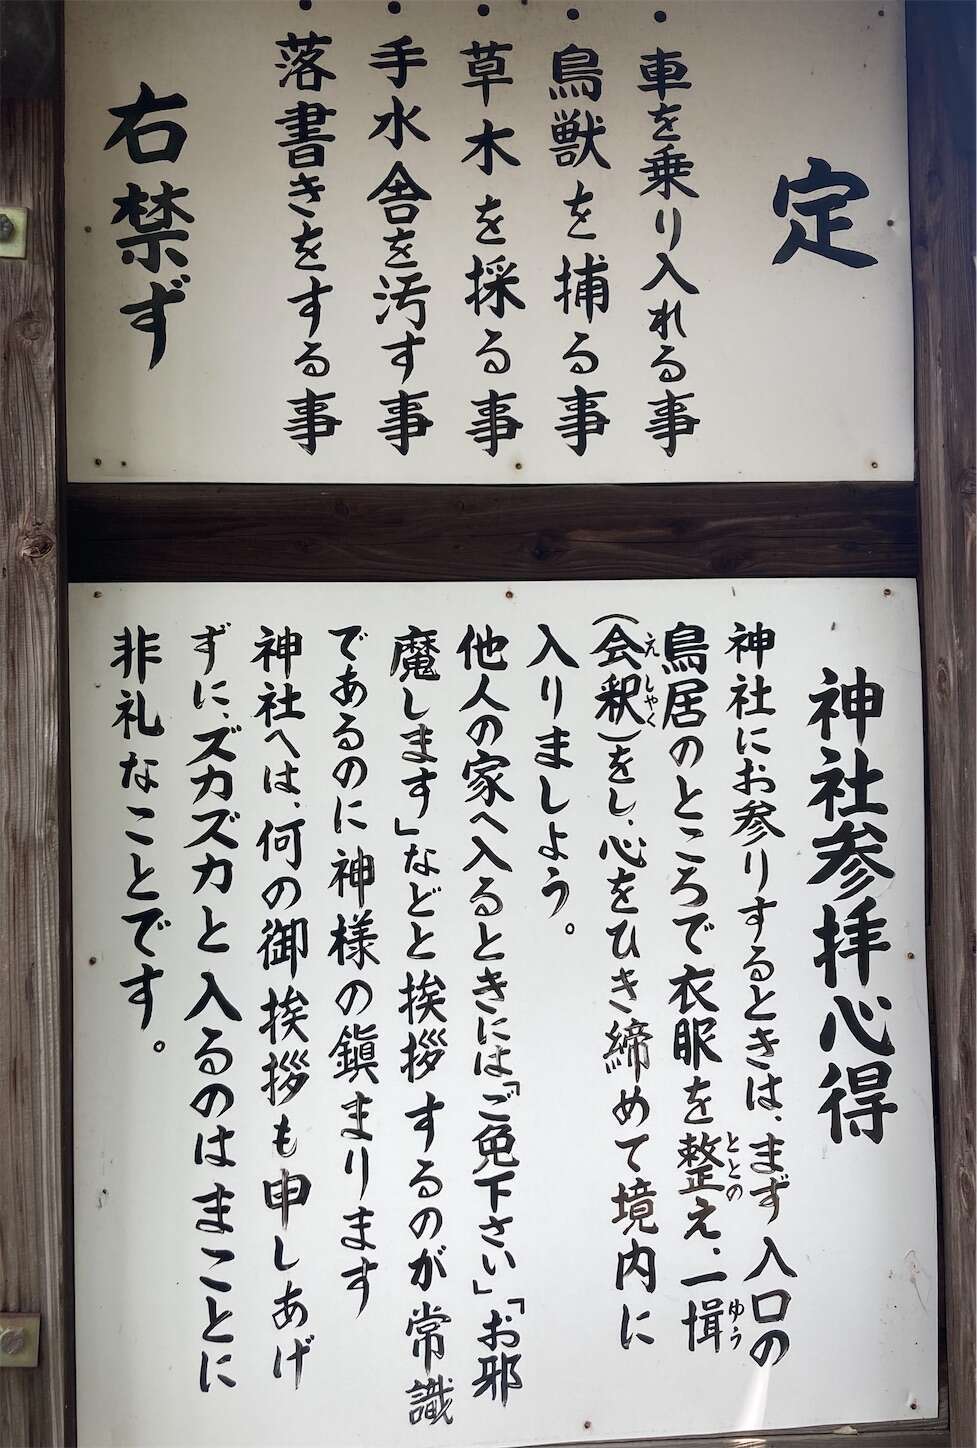 定
・車を乗り入れる事
・鳥獣を捕る事
・草木を採る事
・手水舎を汚す事
・落書きをする事
右禁ず
神社参拝心得
神社にお参りするときは、まず入口の
鳥居のところで衣服を整え、一揖
ととの
ゆう
(会釈)をし、心をひき締めて境内に
えしゃく
入りましよう。
他人の家へ入るときには「ご免下さい」「お邪
魔します」などと挨拶するのが常識
であるのに神様の鎭まります
神社へは、何の御挨拶も申しあげ
ずに、ズカズカと入るのはまことに
非礼なことです。